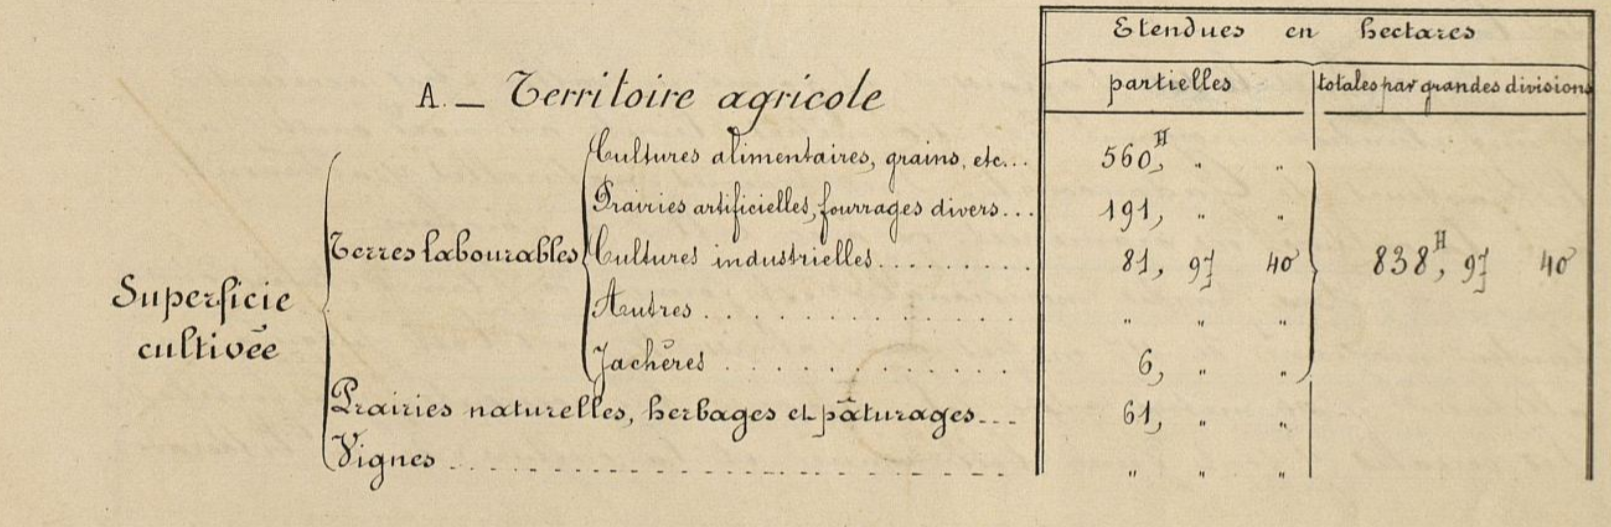 Etendues en hectares
partielles totales par grandes divisions
A. — Territoire agricole
Cultures alimentaires, grains, etc... 560H, " "
Prairies artificielles, fourrages divers... 191, " "
Terres labourables Cultures industrielles......... 81, 97 40 838H, 97 40
Superficie
cultivée
Autres.............. " " "
Jachères............. 6, " "
Prairies naturelles, herbages et pâturages... 61, " "
Vignes.................... " " "